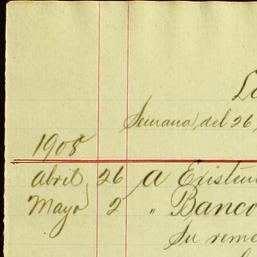 Semana, del 26,
1908
Abril 26 A Existen
Mayo 2 " Banco
Su reme